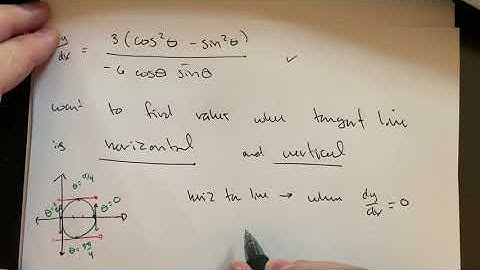 dy/dx = 3(cos²θ - sin²θ) / -6 cosθ sinθ ✓
want to find values when tangent line
is horizontal and vertical
θ = π/4
θ = 0
horiz tan line → when dy/dx = 0